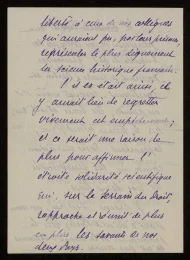 liberté, à ceux de nos collègues
qui auraient pu, par leur présence,
représenter le plus dignement
la science historique française.
S'il en était ainsi, il
y aurait lieu de regretter
vivement cet
et ce serait une raison de
plus pour affirmer l'
étroite solidarité scientifique
qui, sur le terrain du Droit,
rapproche et réunit de plus
en plus les savants de nos
deux Pays.